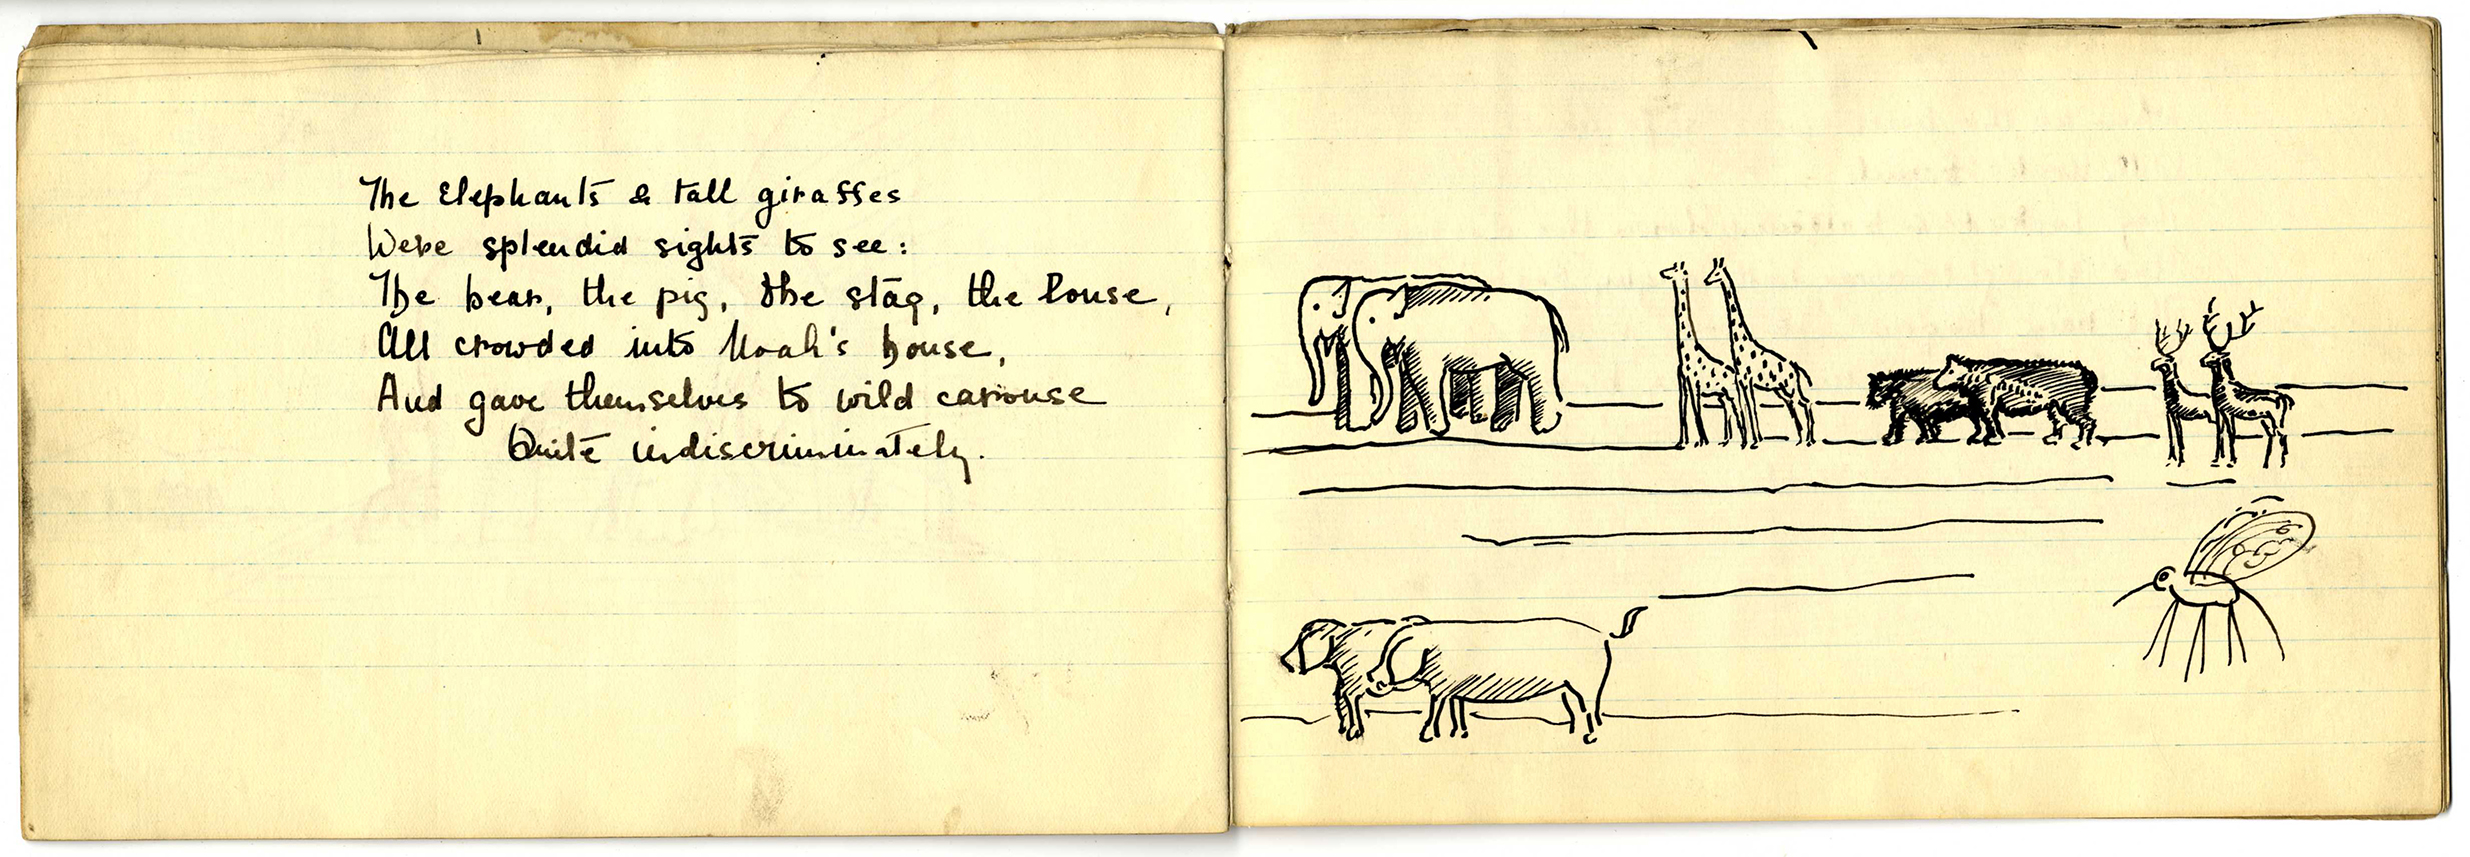 The Elephants & tall giraffes
Were splendid sights to see:
The bear, the pig, the stag, the louse,
All crowded into Noah's house,
And gave themselves to wild carouse
Quite indiscriminately.